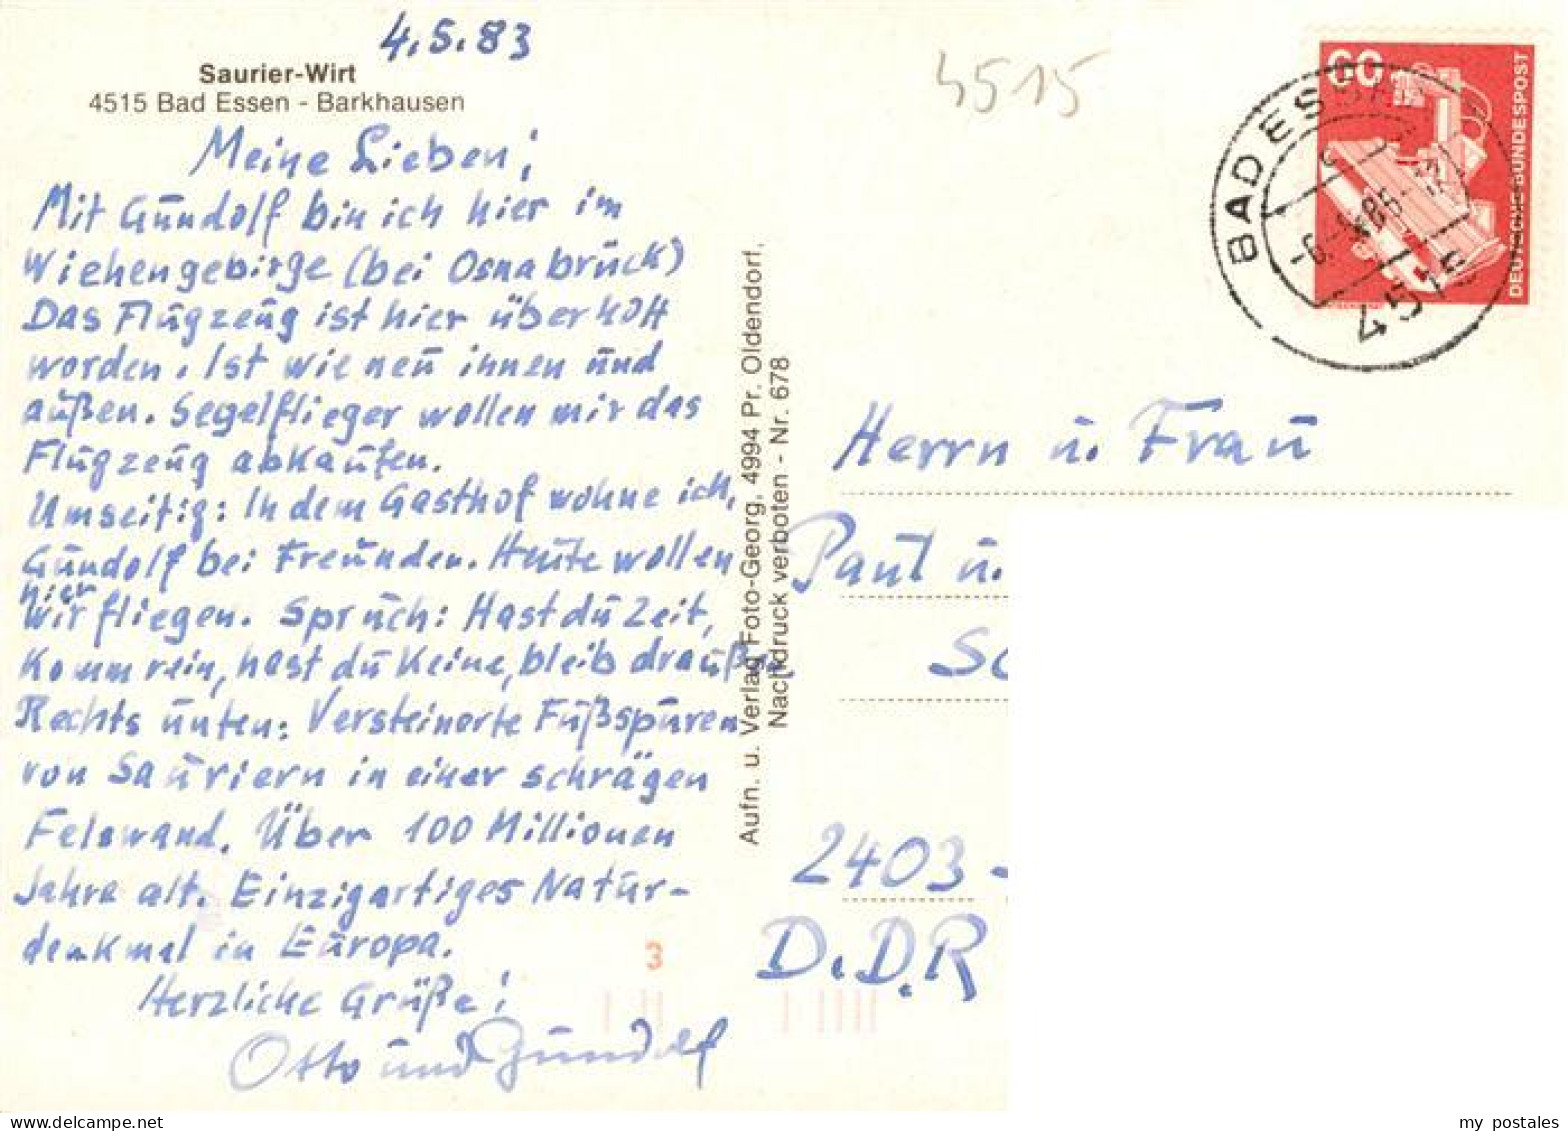 4.5.83
Saurier-Wirt
4515 Bad Essen - Barkhausen
Meine Lieben!
Mit Gundolf bin ich hier im
Wiehengebirge (bei Osnabrück)
Das Flugzeug ist hier überholt
worden. Ist wie neu innen und
außen. Segelflieger wollen mir das
Flugzeug abkaufen.
Umseitig: In dem Gasthof wohne ich,
Gundolf bei Freunden. Heute wollen
hier
wir fliegen. Spruch: Hast du Zeit,
komm rein, hast du keine, bleib draußen
Rechts unten: Versteinerte Fußspuren
von Sauriern in einer schrägen
Felswand. Über 100 Millionen
Jahre alt. Einzigartiges Natur-
denkmal in Europa.
Herzliche Grüße!
Otto und Gundolf
Aufn. u. Verlag Foto-Georg, 4994 Pr. Oldendorf,
Nachdruck verboten - Nr. 678
3
4515
60
DEUTSCHE BUNDESPOST
BAD ESSEN
c
4515
Herrn u. Frau
Paul u.
Sc
2403 -
D.D.R
my postales